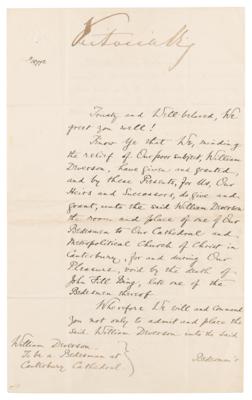 Victoria R
Trusty and Well beloved, We
greet you well!
Know Ye that We, minding
the relief of Our poor subject, William
Dwerson, have given and granted,
and by these Presents, for Us, Our
Heirs and Successors, do give and
grant, unto the said William Dwerson
the room and place of one of Our
Bedesmen to Our Cathedral and
Metropolitical Church of Christ in
Canterbury, for and during Our
Pleasure, void by the death of
John Fill King, late one of the
Bedesmen thereof
Wherefore We will and command
you not only to admit and place the
said William Dwerson into the said
Bedesman's
William Dwerson.
To be a Bedesman at
Canterbury Cathedral.